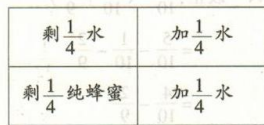 剩1/4水 加1/4水
剩1/4纯蜂蜜 加1/4水